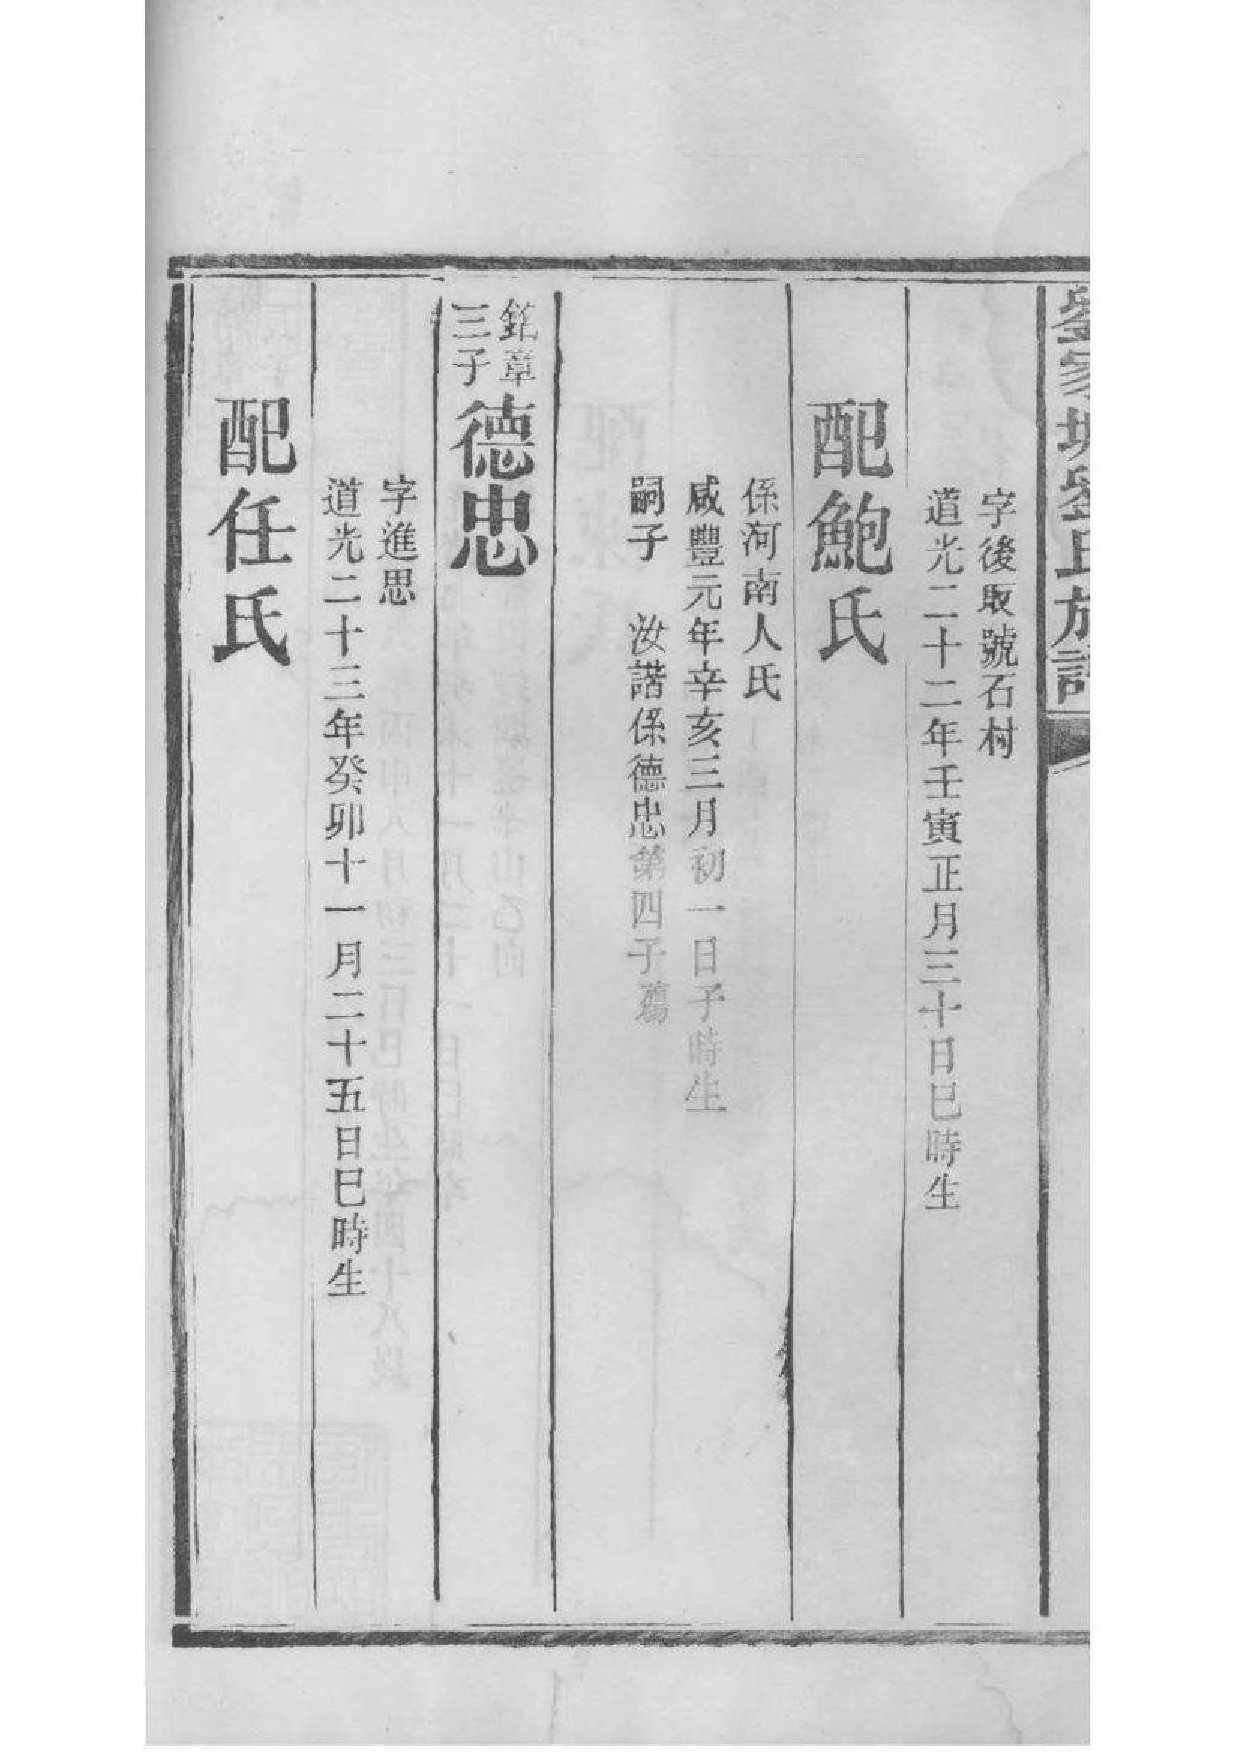 劉家塘劉氏族譜
字後取號石村
道光二十二年壬寅正月三十日巳時生
配鮑氏
係河南人氏
咸豐元年辛亥三月初一日子時生
嗣子 汝諧係德忠第四子
銘章三子
德忠
字進思
道光二十三年癸卯十一月二十五日巳時生
配任氏